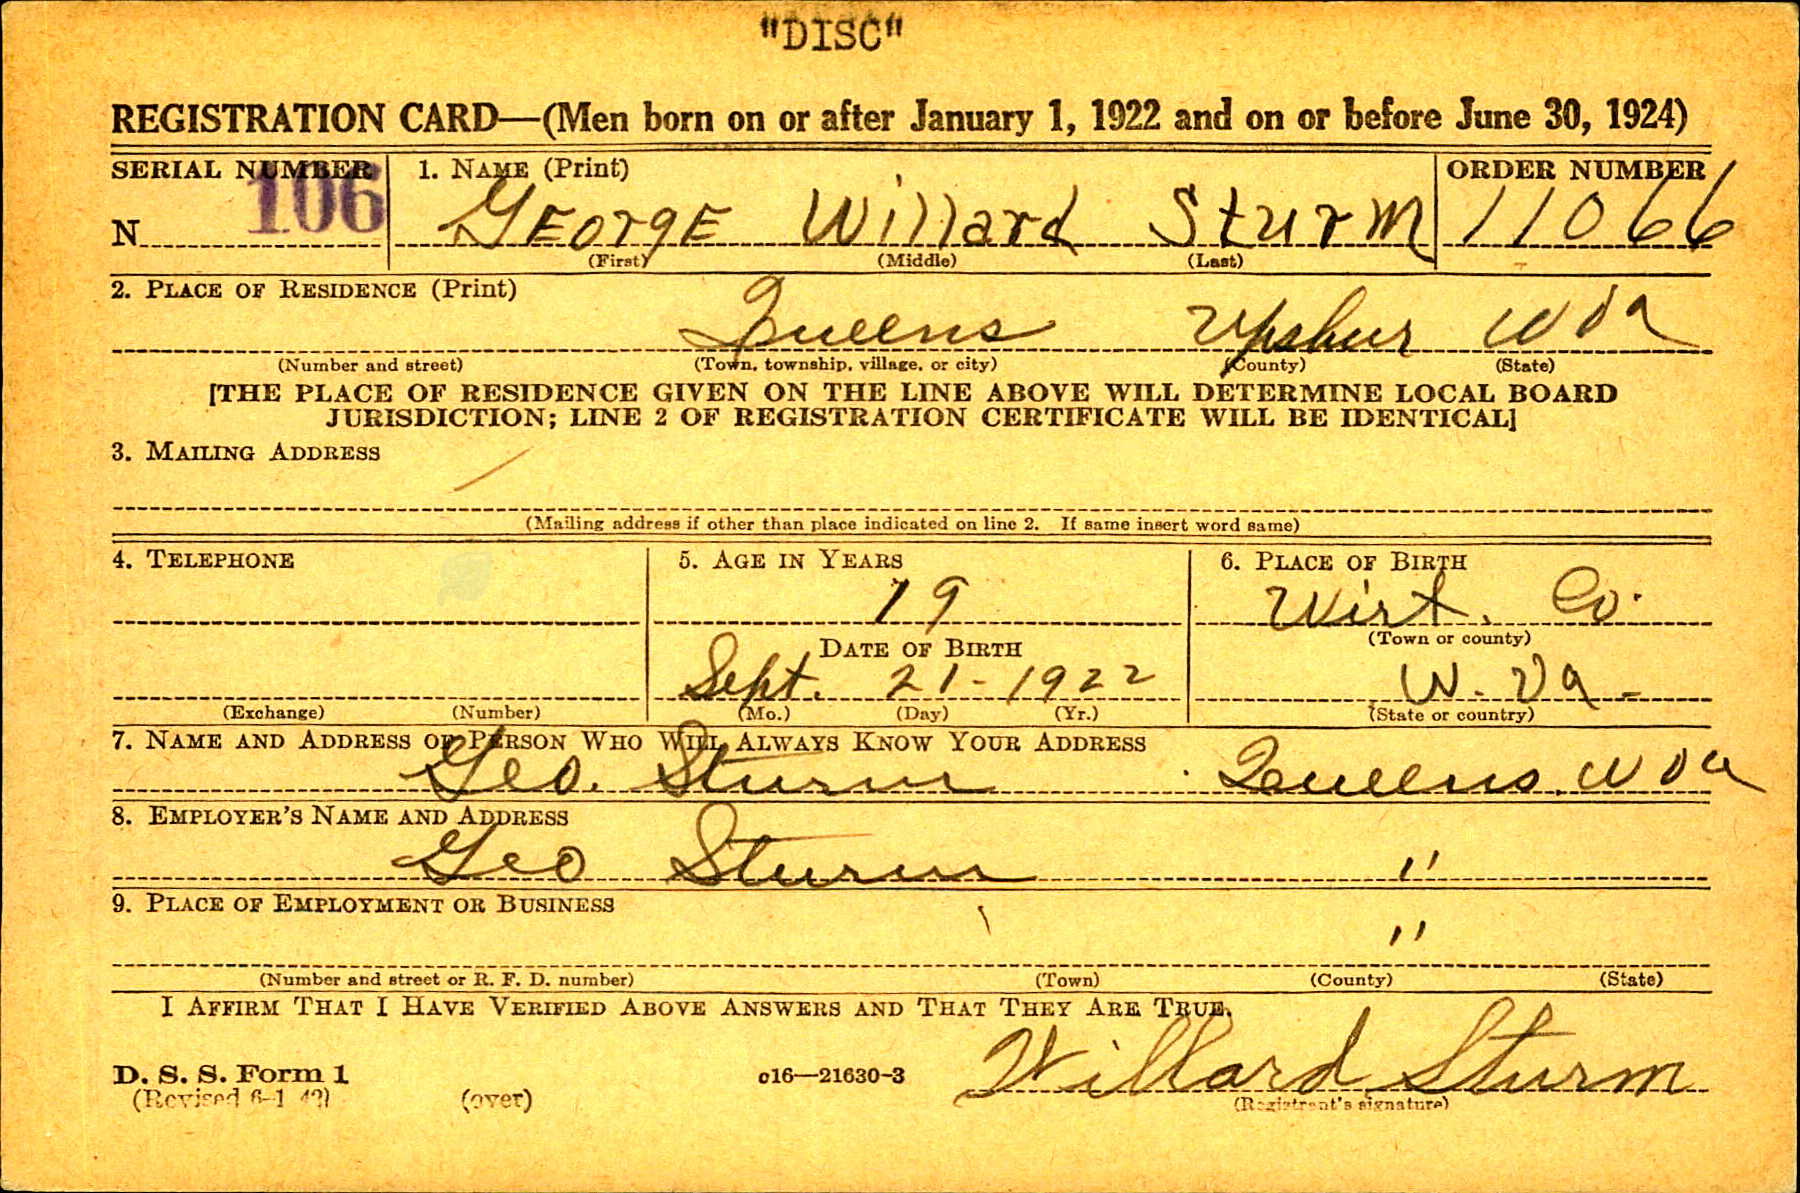 "DISC"
REGISTRATION CARD—(Men born on or after January 1, 1922 and on or before June 30, 1924)
SERIAL NUMBER 1. NAME (Print) ORDER NUMBER
N 106 GEorgE Willard Sturm 11066
(First) (Middle) (Last)
2. PLACE OF RESIDENCE (Print)
Queens Upshur W Va
(Number and street) (Town, township, village, or city) (County) (State)
[THE PLACE OF RESIDENCE GIVEN ON THE LINE ABOVE WILL DETERMINE LOCAL BOARD
JURISDICTION; LINE 2 OF REGISTRATION CERTIFICATE WILL BE IDENTICAL]
3. MAILING ADDRESS
(Mailing address if other than place indicated on line 2. If same insert word same)
4. TELEPHONE 5. AGE IN YEARS 6. PLACE OF BIRTH
19 Wirt. Co.
DATE OF BIRTH (Town or county)
Sept. 21-1922 W. Va-
(Exchange) (Number) (Mo.) (Day) (Yr.) (State or country)
7. NAME AND ADDRESS OF PERSON WHO WILL ALWAYS KNOW YOUR ADDRESS
Geo. Sturm Queens. W Va
8. EMPLOYER'S NAME AND ADDRESS
Geo Sturm "
9. PLACE OF EMPLOYMENT OR BUSINESS
"
(Number and street or R. F. D. number) (Town) (County) (State)
I AFFIRM THAT I HAVE VERIFIED ABOVE ANSWERS AND THAT THEY ARE TRUE.
Willard Sturm
D. S. S. Form 1 c16—21630-3
(Revised 6-1-42) (over) (Registrant's signature)